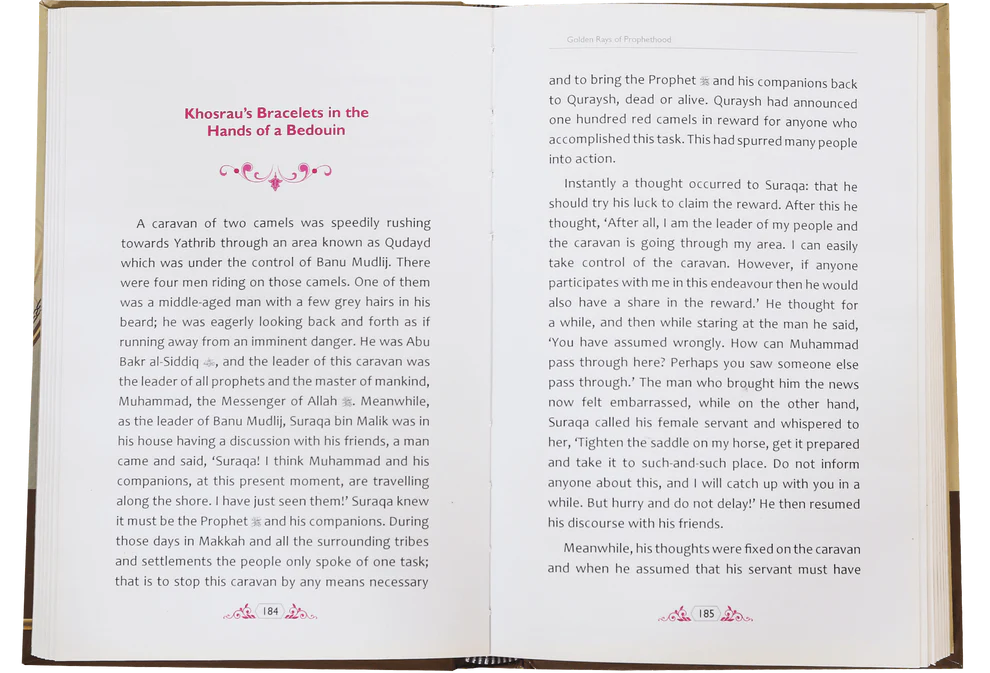 Khosrau's Bracelets in the
Hands of a Bedouin
A caravan of two camels was speedily rushing
towards Yathrib through an area known as Qudayd
which was under the control of Banu Mudlij. There
were four men riding on those camels. One of them
was a middle-aged man with a few grey hairs in his
beard; he was eagerly looking back and forth as if
running away from an imminent danger. He was Abu
Bakr al-Siddiq, and the leader of this caravan was
the leader of all prophets and the master of mankind,
Muhammad, the Messenger of Allah ﷺ. Meanwhile,
as the leader of Banu Mudlij, Suraqa bin Malik was in
his house having a discussion with his friends, a man
came and said, 'Suraqa! I think Muhammad and his
companions, at this present moment, are travelling
along the shore. I have just seen them!' Suraqa knew
it must be the Prophet ﷺ and his companions. During
those days in Makkah and all the surrounding tribes
and settlements the people only spoke of one task;
that is to stop this caravan by any means necessary
184
Golden Rays of Prophethood
and to bring the Prophet ﷺ and his companions back
to Quraysh, dead or alive. Quraysh had announced
one hundred red camels in reward for anyone who
accomplished this task. This had spurred many people
into action.
Instantly a thought occurred to Suraqa: that he
should try his luck to claim the reward. After this he
thought, 'After all, I am the leader of my people and
the caravan is going through my area. I can easily
take control of the caravan. However, if anyone
participates with me in this endeavour then he would
also have a share in the reward.' He thought for
a while, and then while staring at the man he said,
'You have assumed wrongly. How can Muhammad
pass through here? Perhaps you saw someone else
pass through.' The man who brought him the news
now felt embarrassed, while on the other hand,
Suraqa called his female servant and whispered to
her, 'Tighten the saddle on my horse, get it prepared
and take it to such-and-such place. Do not inform
anyone about this, and I will catch up with you in a
while. But hurry and do not delay!' He then resumed
his discourse with his friends.
Meanwhile, his thoughts were fixed on the caravan
and when he assumed that his servant must have
185